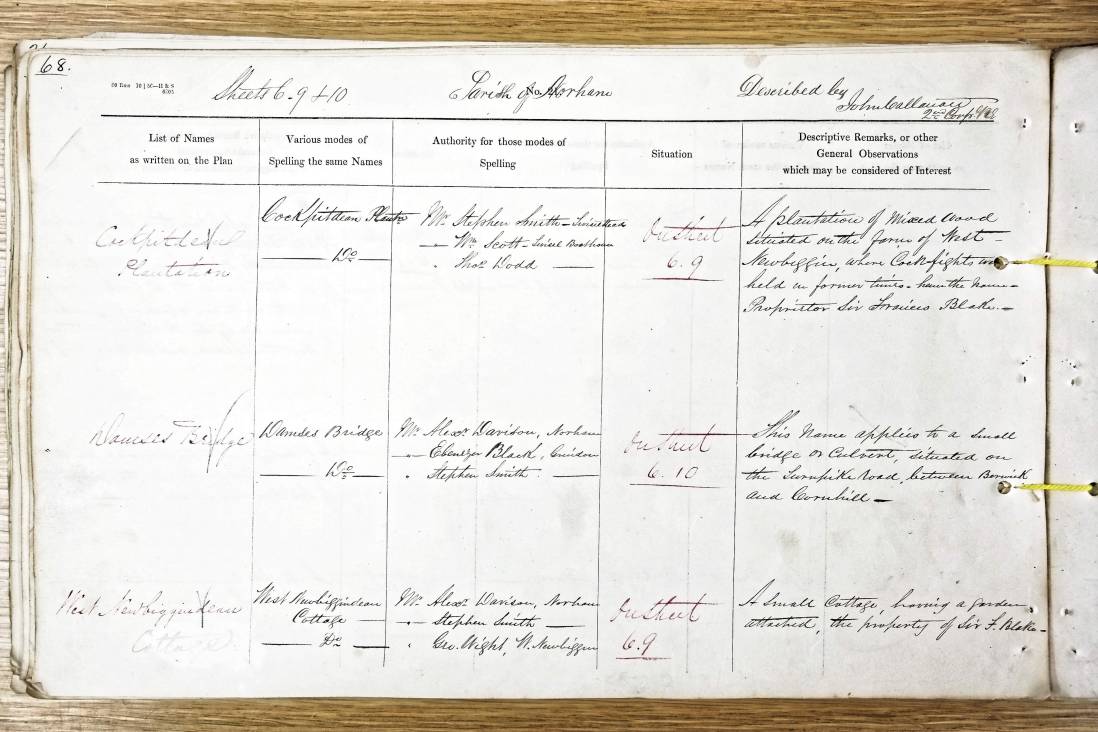 68.
Sheets 6-9 & 10
Parish of Norham
No.
Described by
John Callanan
2nd Corp.
List of Names
as written on the Plan
Various modes of
Spelling the same Names
Authority for those modes of
Spelling
Situation
Descriptive Remarks, or other
General Observations
which may be considered of Interest
Cockpitdean
Plantation
Cockpitdean Plantn
Do
Mr. Stephen Smith -
Wm. Scott -
" Thos. Dodd
On Sheet
6.9
A plantation of Mixed wood
situated on the farm of West -
Newbiggin, where Cockfights were
held in former times - hence the name -
Proprietor Sir Francis Blake. -
Damses Bridge
Damses Bridge
Do
Mr. Alexr. Davison, Norham
Ebenezer Black,
" Stephen Smith
On Sheet
6.10
This Name applies to a small
bridge or Culvert, situated on
the Turnpike Road, between Berwick
and Cornhill -
West Newbiggindean
Cottage
West Newbiggindean
Cottage
Do
Mr. Alexr. Davison, Norham
Stephen Smith
" Geo. Wight, W. Newbiggin
On Sheet
6.9
A Small Cottage, having a garden
attached, the property of Sir F. Blake -